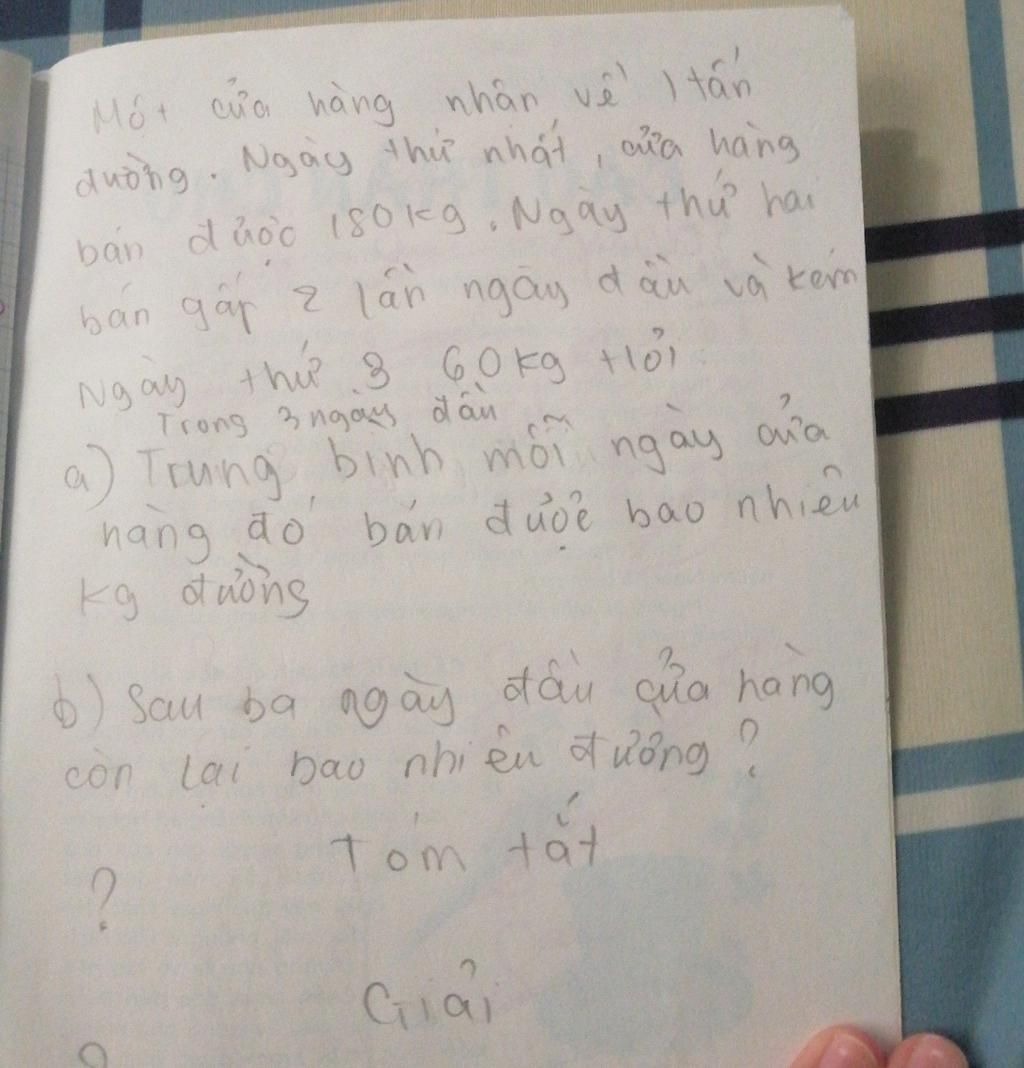 Một cửa hàng nhận về 1 tấn
đường. Ngày thứ nhất, cửa hàng
bán được 180kg. Ngày thứ hai
bán gấp 2 lần ngày đầu và kém
Ngày thứ 3 60kg
Trong 3 ngày đầu
a) Trung bình mỗi ngày cửa
hàng đó bán được bao nhiêu
kg đường
b) Sau ba ngày đầu cửa hàng
còn lại bao nhiêu đường?
Tóm tắt
?
Giải